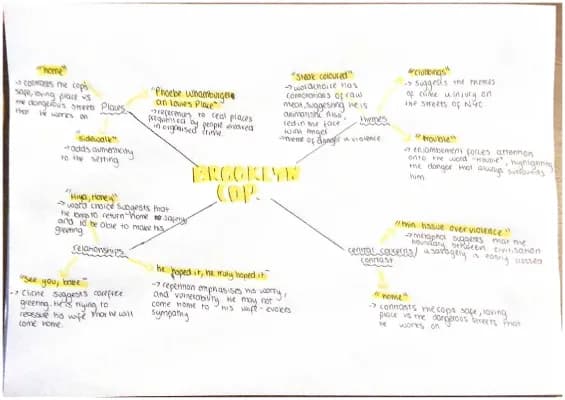 BROOKLYN
COP.
Places
"home"
→ contrasts the cops
safe, loving place vs
the dangerous streets
that he works on
"Phoebe Whamburgers
on Louie's Place"
→ references to real places
by people
in organised crime.
"sidewalk"
→ adds authenticity
to the setting
Themes
"Steak coloured"
→ word choice has
connotations of raw
meat, suggesting he is
animalistic
red in the face
with anger
→ theme of danger & violence
"clubbings"
→ suggests the themes
of crime & injury on
the streets of NYC
"trouble"
→ enjambement forces attention
onto the word "trouble", highlighting
the danger that always surrounds
him.
relationships
"Hiya, honey"
→ word choice suggests that
he longs to return home safely
and to be able to make his
greeting
"See you, babe"
→ Cliche suggests carefree
greeting. He is trying to
reassure his wife that he will
come home.
"he hoped it, he truly hoped it"
→ repetition emphasises his worry,
and vulnerability. He may not
come home to his wife - evokes
sympathy
central concerns/
contrast
"thin tissue over violence"
→ metaphor suggests that the
boundary between civilisation
& savagery is easily crossed
"home"
→ contrasts the cops safe, loving
place vs the dangerous streets that
he works on